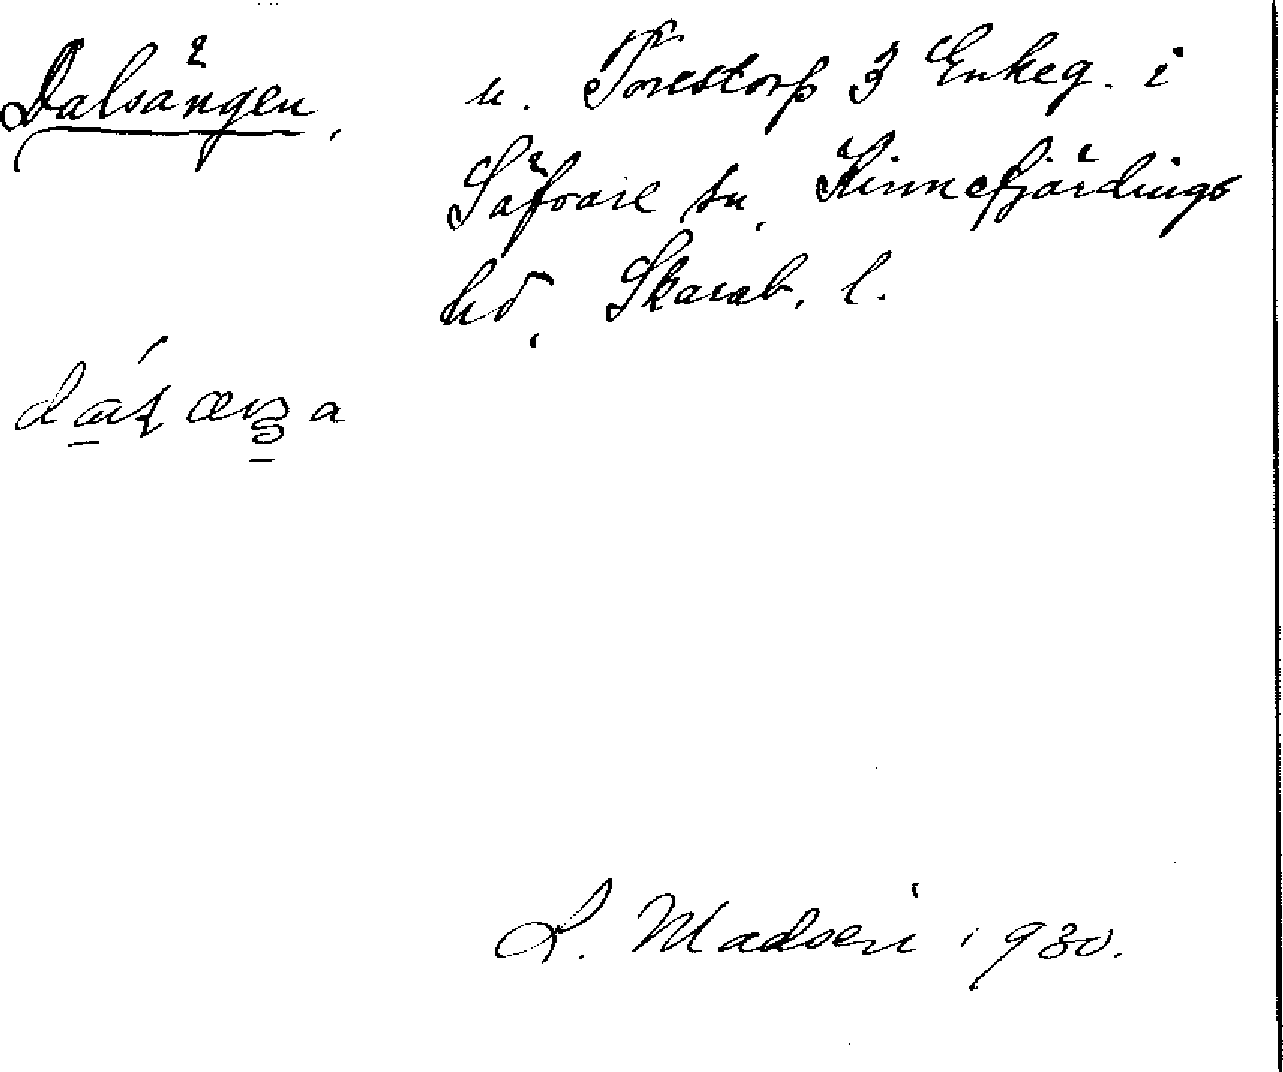 Dalsängen, u. Torestorp 3 Enkeg. i
Säfvare sn, Kinnefjärdings
hd, Skarab. l.
L. Madsen 1930.